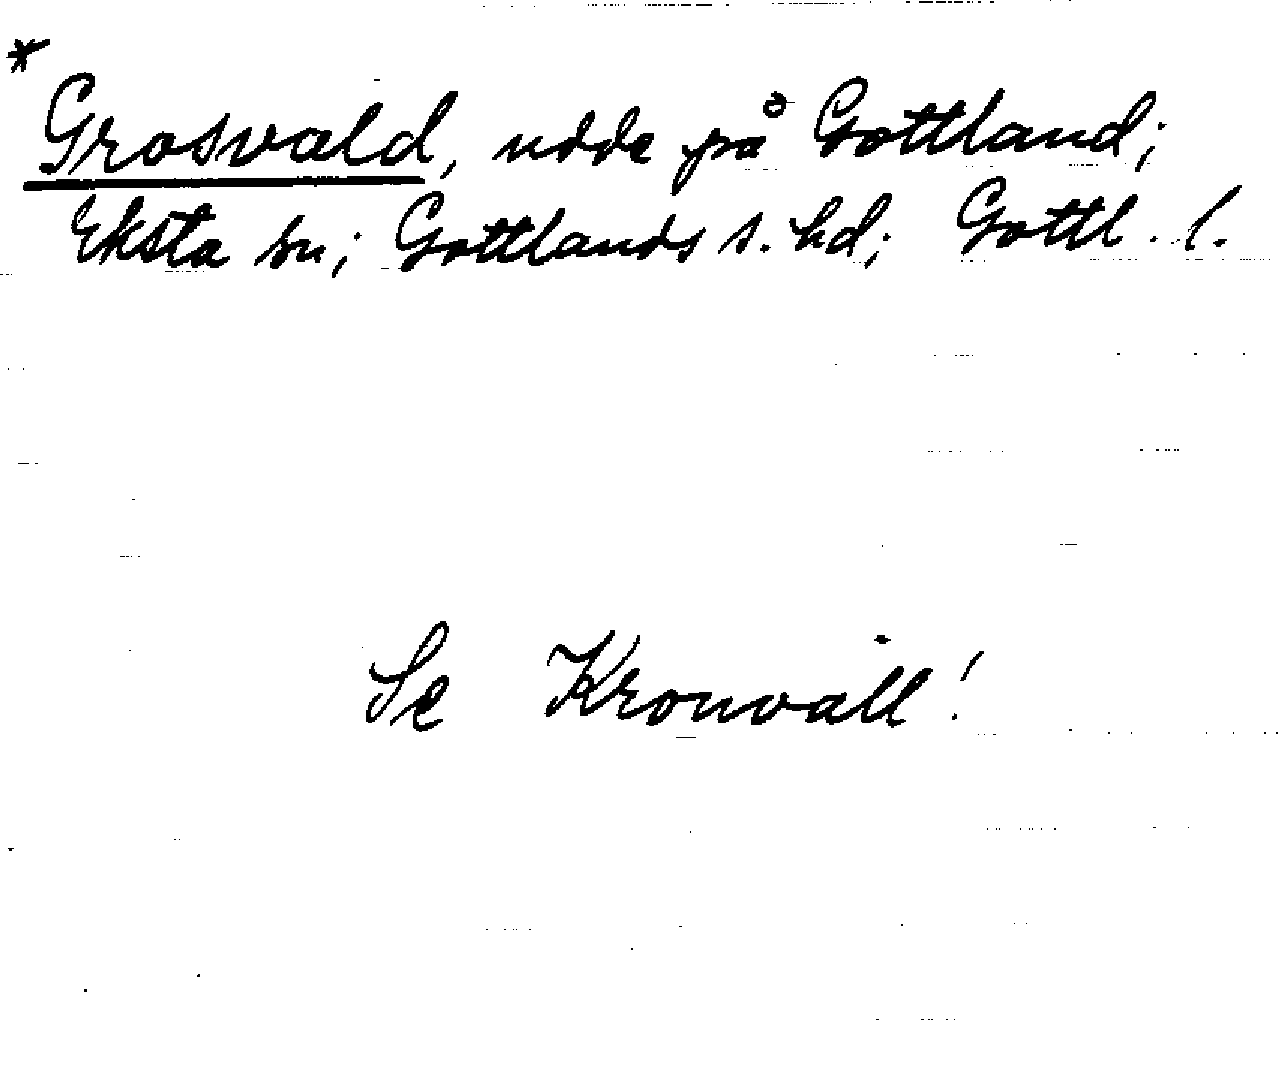 * Grosvald, udde på Gottland;
Eksta sn; Gottlands s. hd; Gottl. l.
Se Kronvall!